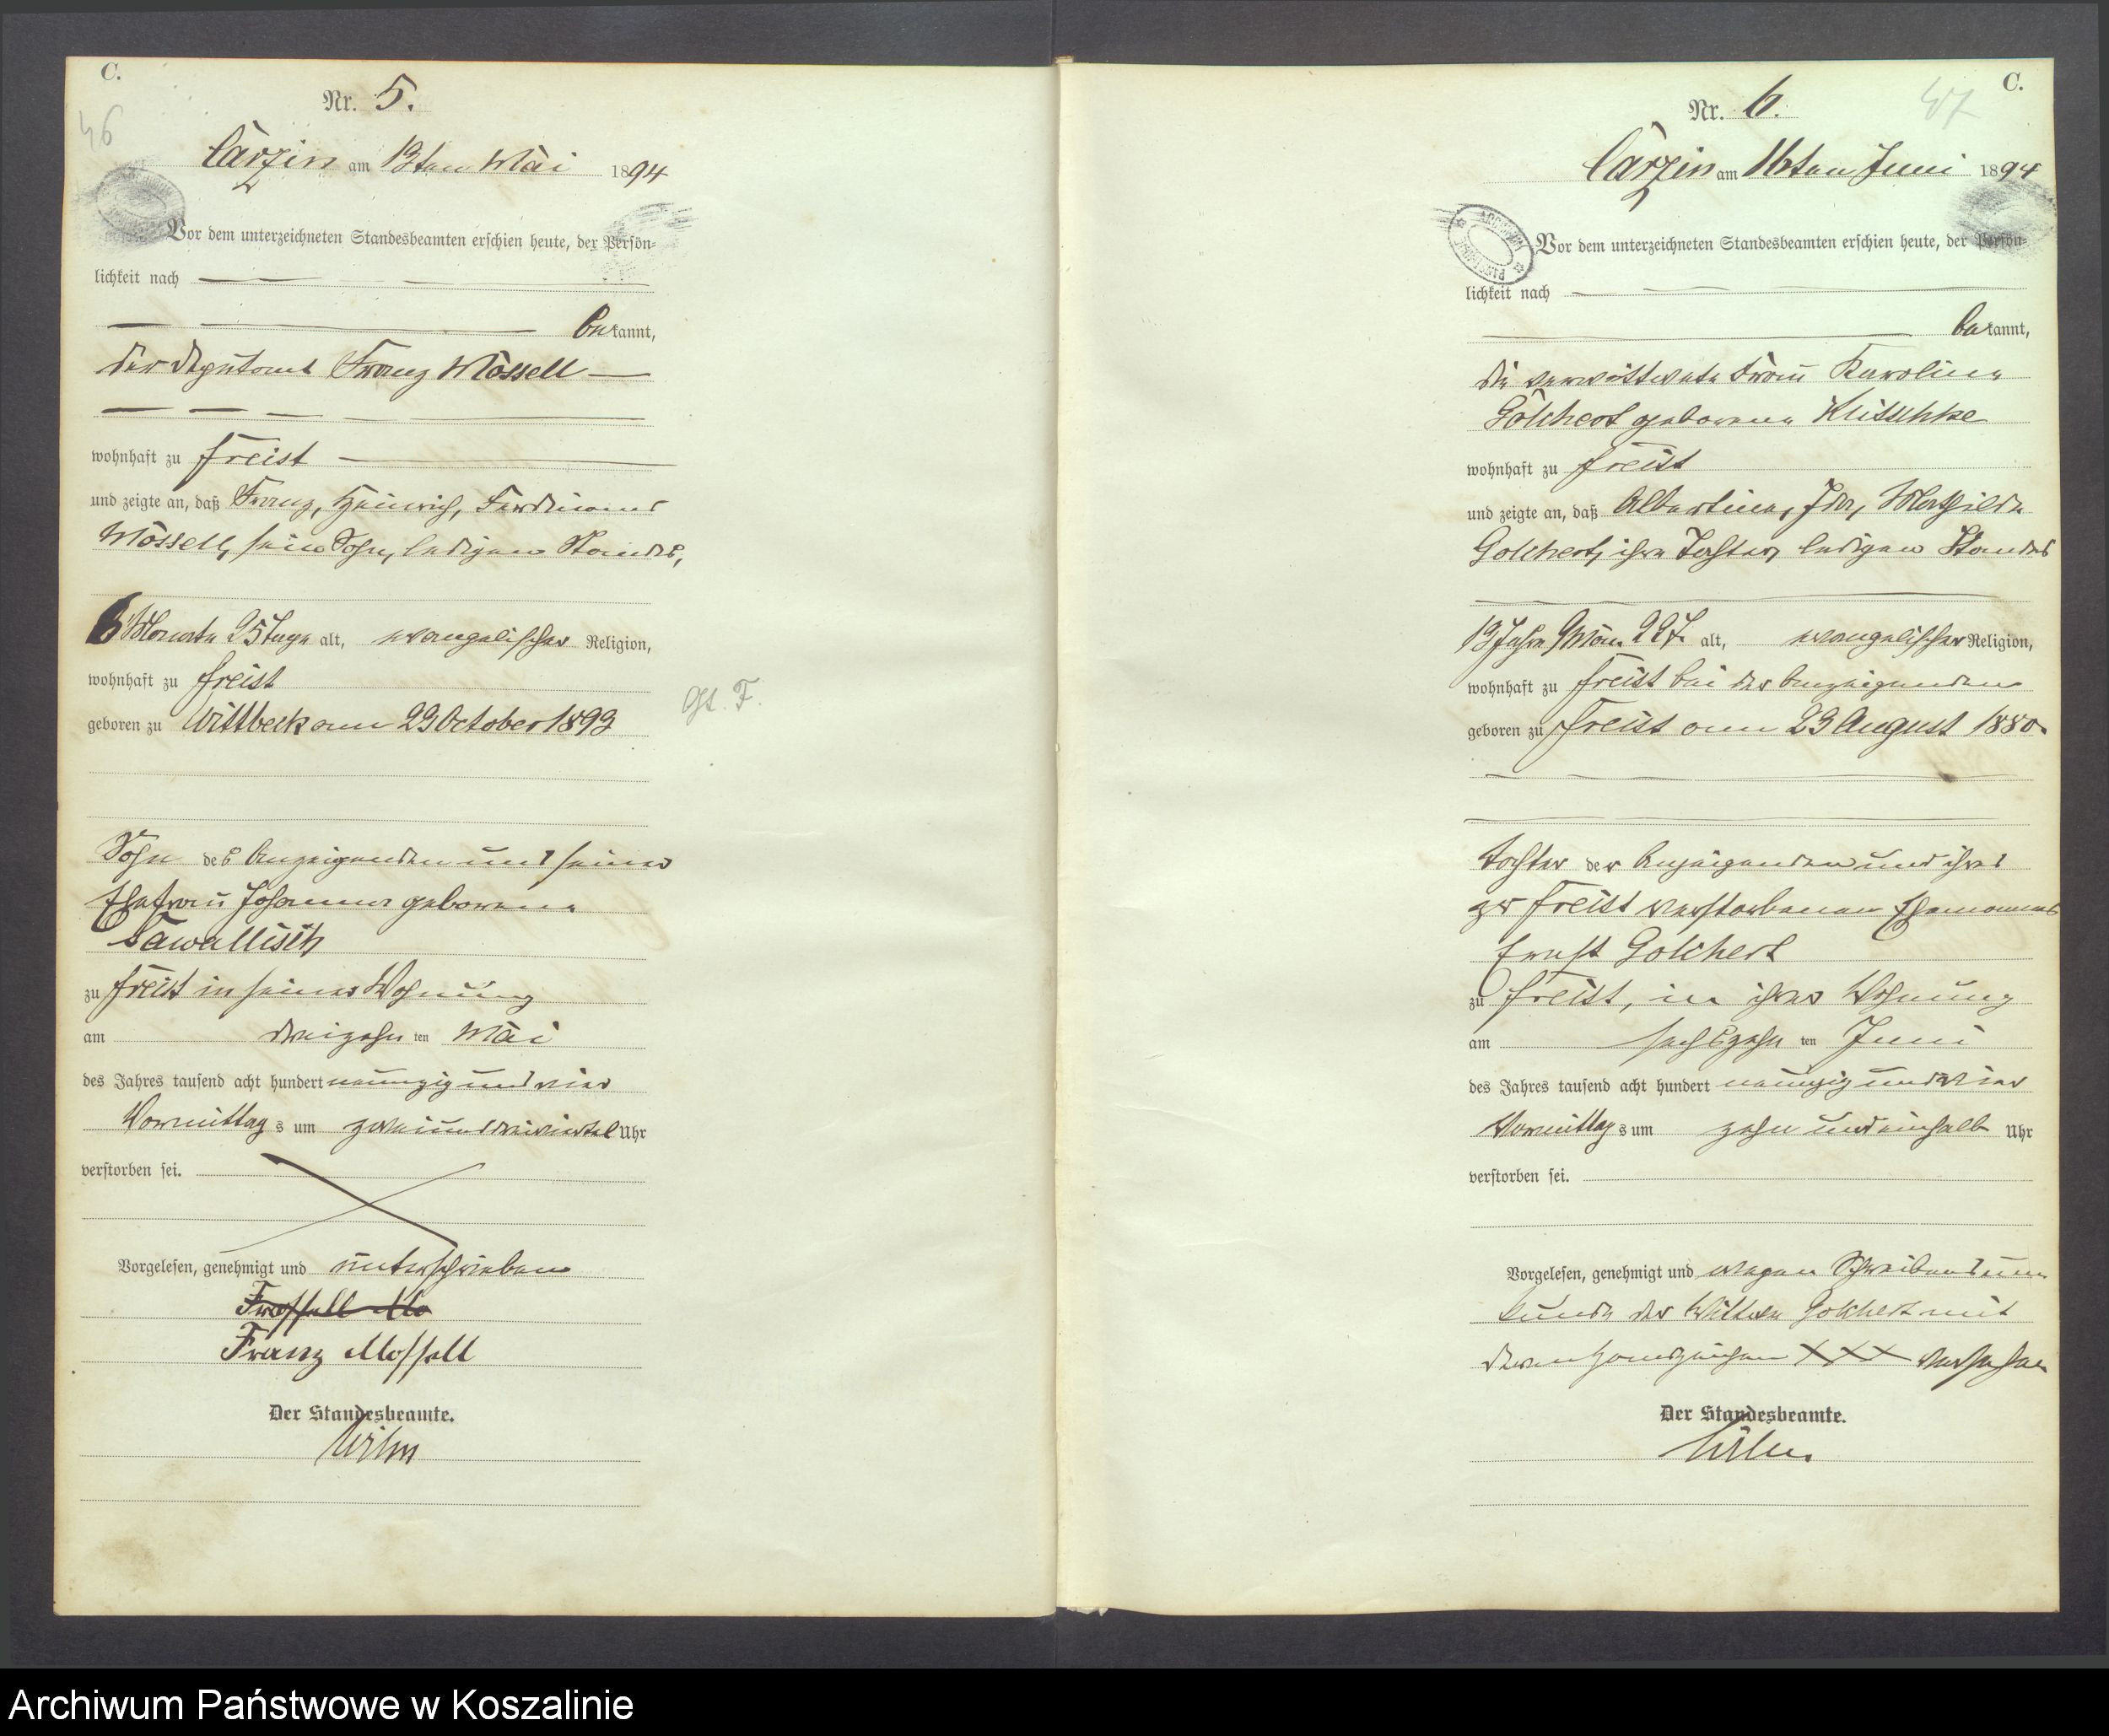 C.
46
Nr. 5.
Carzin am 13ten Mai 1894
Vor dem unterzeichneten Standesbeamten erschien heute, der Persön-
lichkeit nach
bekannt,
der Deputant Franz Mossell
wohnhaft zu Freist
und zeigte an, daß Franz, Heinrich, Ferdinand
Mossell, sein Sohn, ledigen Standes,
6 Monate 25 Tage alt, evangelischer Religion,
wohnhaft zu Freist
geboren zu Wittbeck am 29 October 1893
Gst. F.
Sohn des Anzeigenden und seiner
Ehefrau Johanna geborene
Sawallisch
zu Freist in seiner Wohnung
am dreizehn ten Mai
des Jahres tausend acht hundert neunzig und vier
Vormittag s um zwei und dreiviertel Uhr
verstorben sei.
Vorgelesen, genehmigt und unterschrieben
Franz Mossell
Der Standesbeamte.
C.
47
Nr. 6.
Carzin am 16ten Juni 1894
ARCHIWUM PAŃSTWOWE
Vor dem unterzeichneten Standesbeamten erschien heute, der Persön-
lichkeit nach
bekannt,
die verwittwete Frau Karoline
Golchert geborene Klitschke
wohnhaft zu Freist
und zeigte an, daß Albertine, Ida, Mathilde
Golchert, ihre Tochter, ledigen Standes
13 Jahre 9 Mon. 22 T. alt, evangelischer Religion,
wohnhaft zu Freist bei der Anzeigenden
geboren zu Freist am 23 August 1880.
Tochter der Anzeigenden und ihres
zu Freist verstorbenen Ehemannes
Ernst Golchert
zu Freist, in ihrer Wohnung
am sechszehn ten Juni
des Jahres tausend acht hundert neunzig und vier
Vormittag s um zehn und einhalb Uhr
verstorben sei.
Vorgelesen, genehmigt und wegen Schreibensun
kunde der Wittwe Golchert mit
deren Handzeichen XXX versehen
Der Standesbeamte.
Archiwum Państwowe w Koszalinie